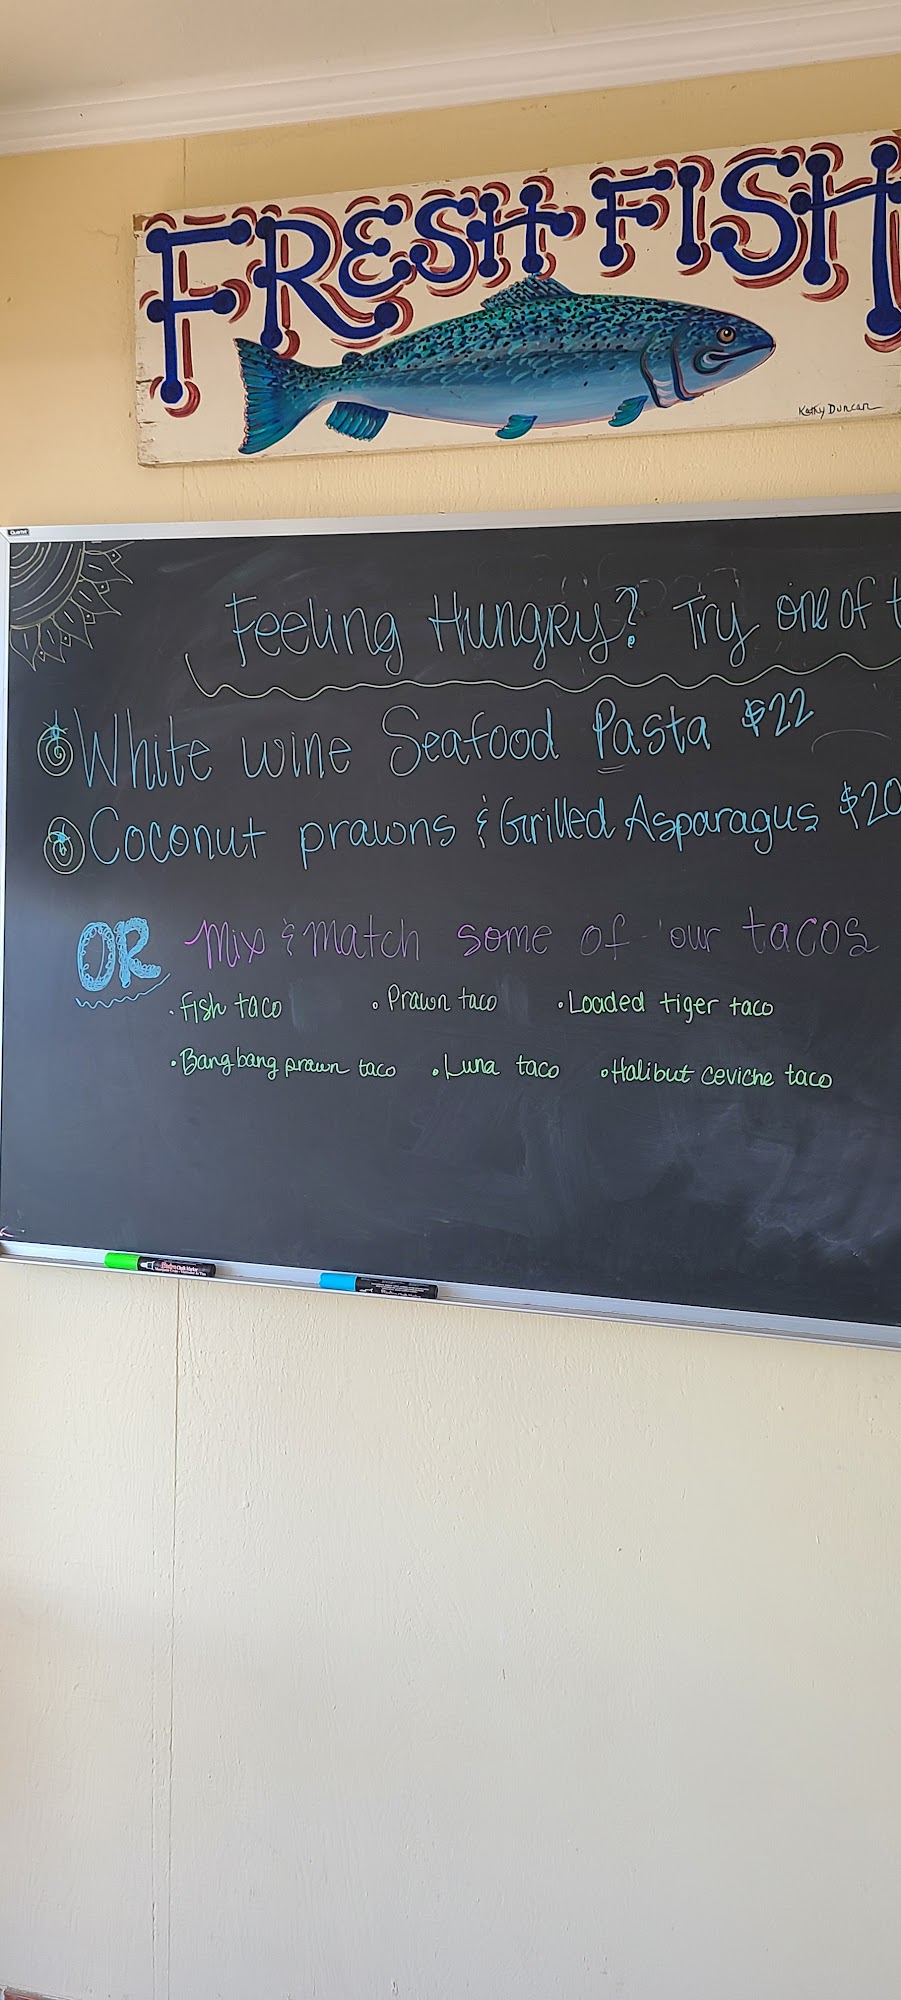 FRESH FISH
Kathy Duncan
Quartet
Feeling Hungry? Try one of t
White wine Seafood Pasta $22
Coconut prawns & Grilled Asparagus $20
OR Mix & Match some of our tacos
· Fish taco · Prawn taco · Loaded tiger taco
· Bang bang prawn taco · Luna taco · Halibut ceviche taco